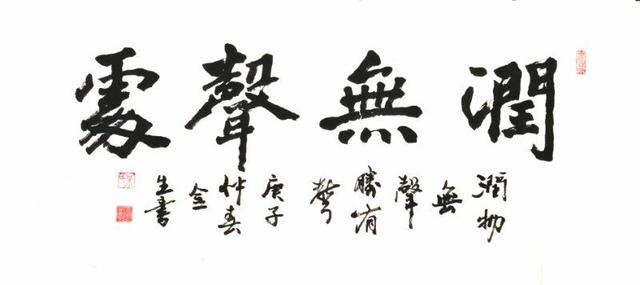 潤無聲處
潤物
無
聲
勝有
聲
庚子
仲春
金
生書